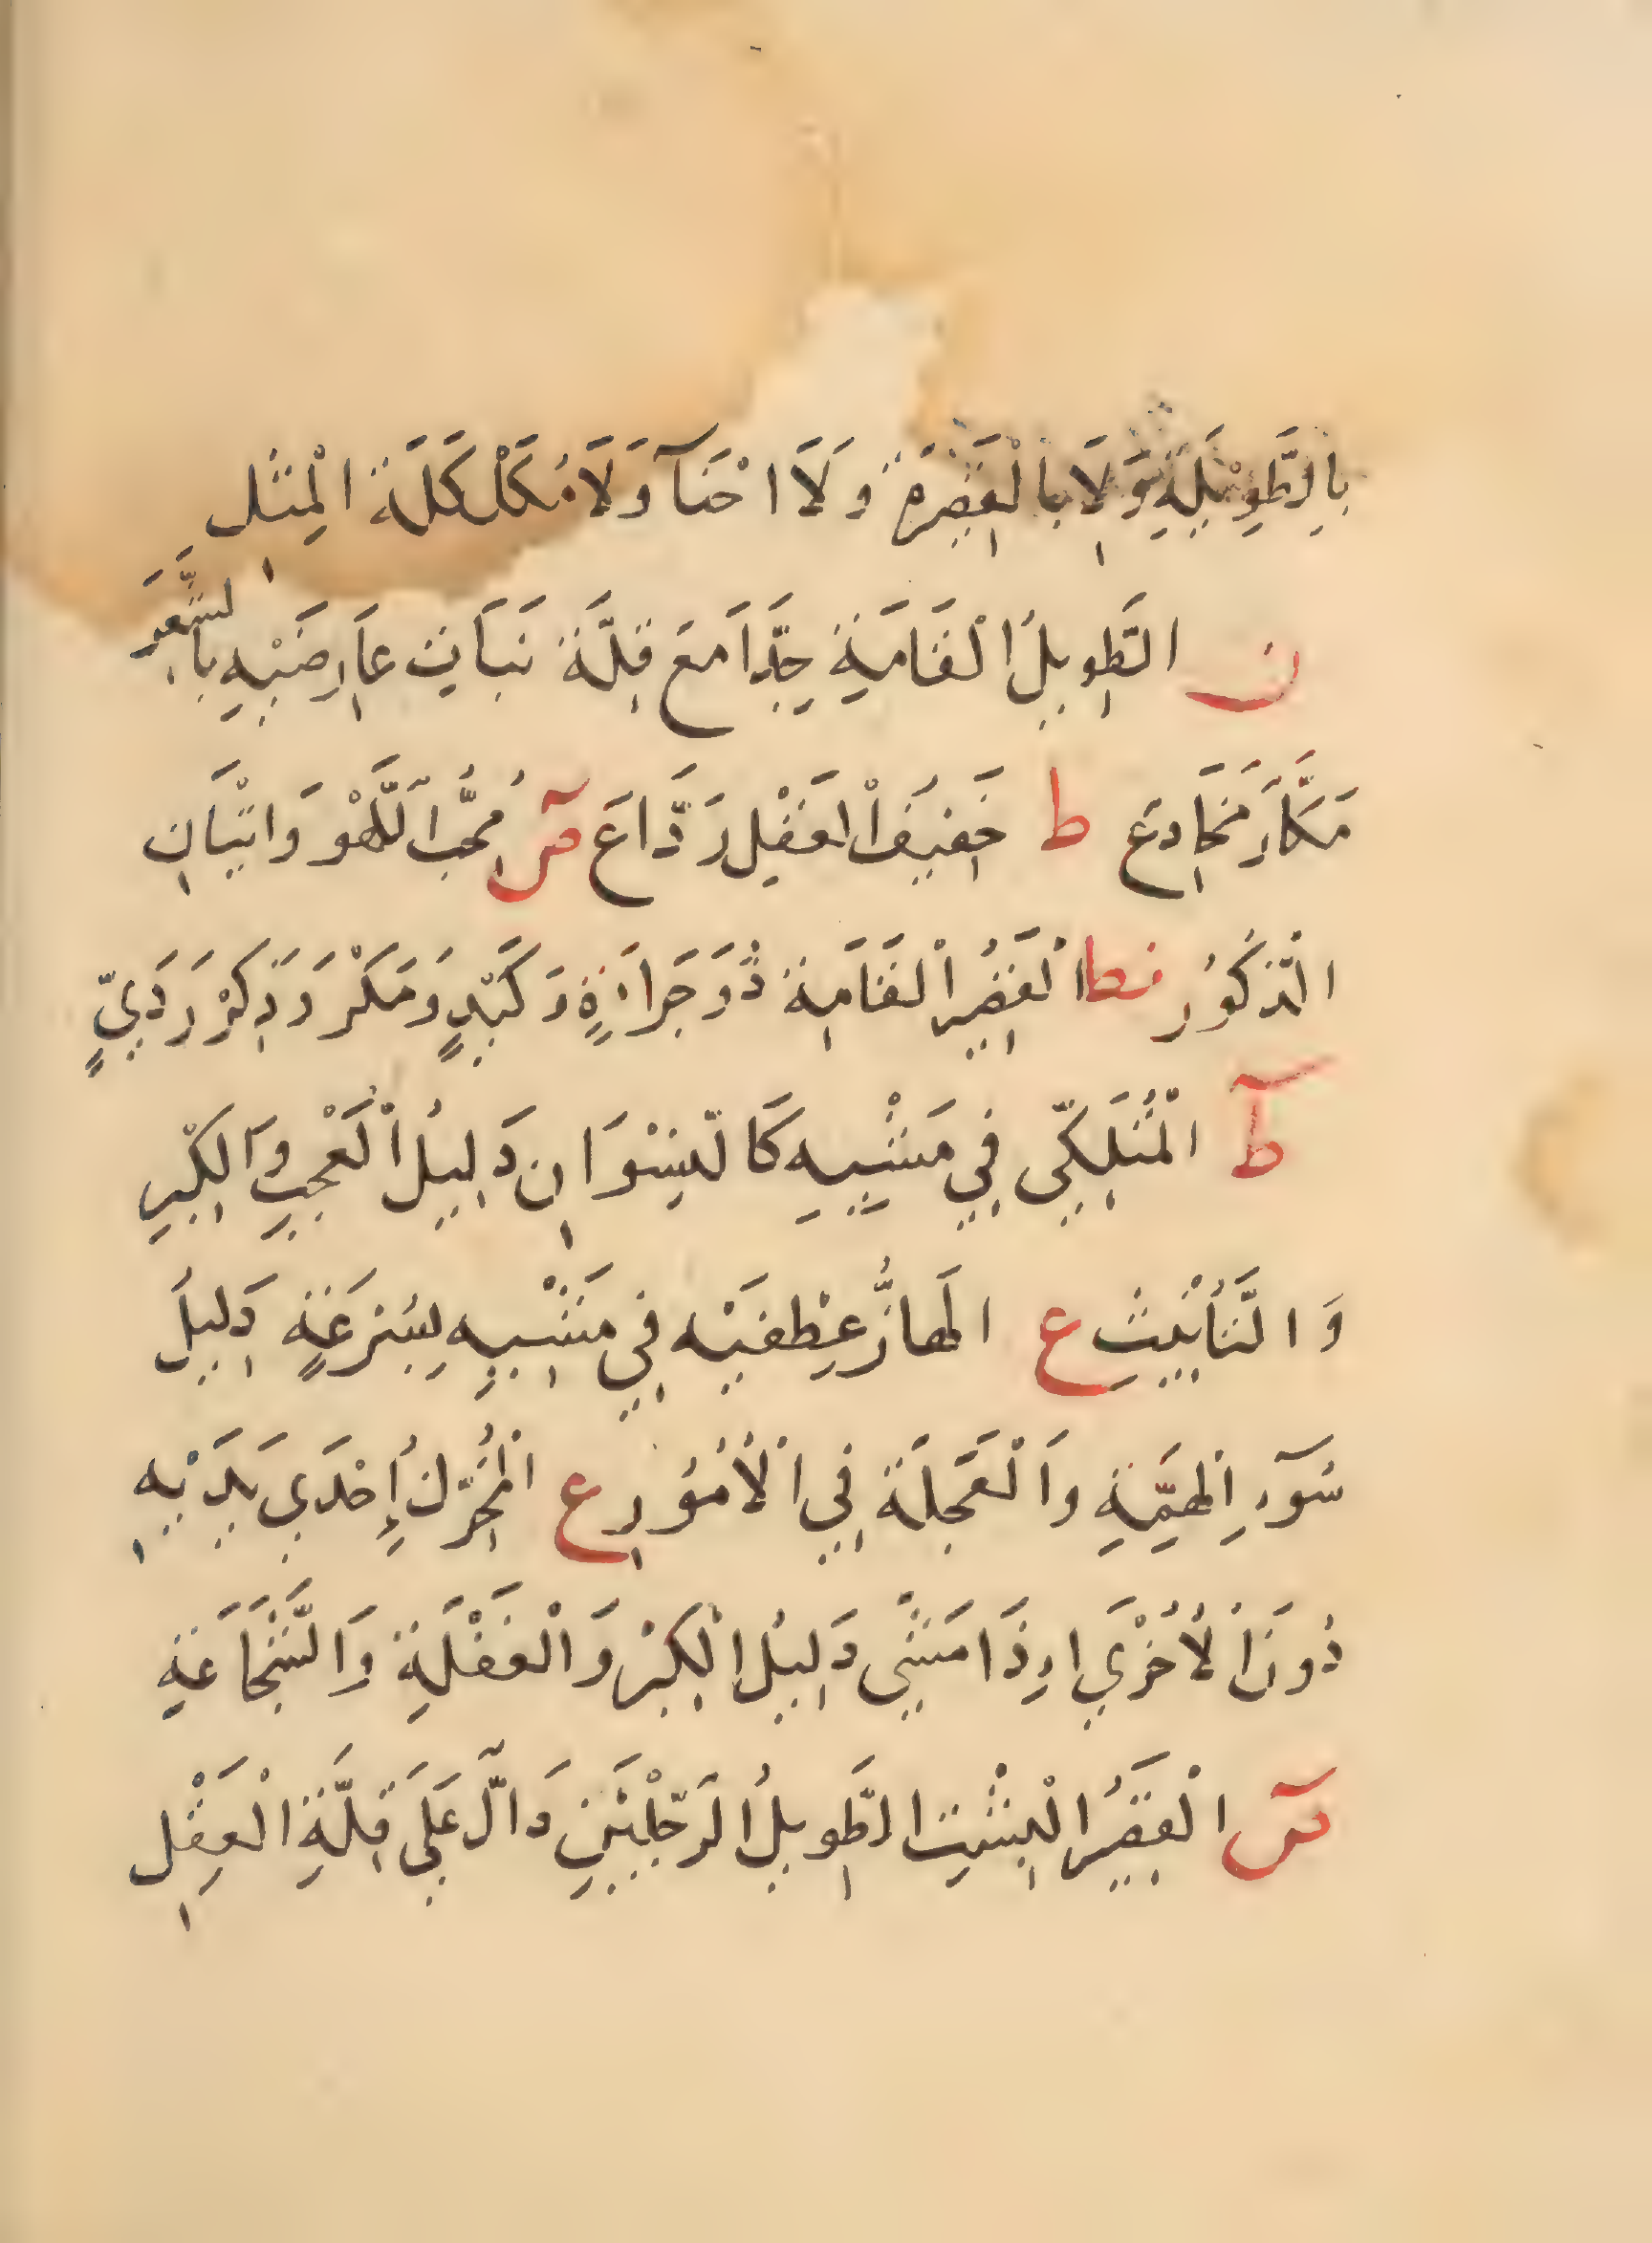 بِالطَّوِيْلَةِ وَلَا بِالْقَصِيْرَةِ وَلَا احْنَآ وَلَا مُكَلْكَلَة الْمِثْلِ
ن الطَّوِيلُ الْقَامَةِ جِدَّاً مَعَ قِلَّة نَبَاتِ عَارِضَيْهِ بِالشَّعَرِ
مَكَّارَ مَخَادِع ط خَفِيفُ الْعَقْلِ رَدَّاعَ ص مُحِبُّ اللَّهْوَ وَاتْيَانِ
الذَّكُورِ نط الْقَصِيرُ الْقَامَةِ ذُوَ جَرَاءَةٍ وَكَيْدٍ وَمَكَرْ وَدِكْرَ رَدَيٍّ
ط الْمُتَلَكِّي فِي مَشْيِهِ كَالنِّسْوَانِ دَلِيلُ الْعُجْبِ وَالْكِبْرِ
وَالتَّأْنِيْثِ ع الهَازُّ عِطْفَيْه فِي مَشْيِهِ بِسُرْعَةٍ دَلِيلَ
سُوٓءِ الْهِمَّةِ وَالْعَجَلَة فِي الْأُمُورِ ع الْمُحَرِّكُ إِحْدَي يَدَيْهِ
دُونَ الْأُخْرَي اِذَا مَشَي دَلِيلُ الْكِبْرَ وَالْغَفْلَةِ وَالشَّجَاعَةِ
ص الْقَصِيرُ الْبِنْيَتِ الطَّوِيلُ الرِّجْلَيْنِ دَالّ عَلَي قِلَّةِ الْعَقْلِ